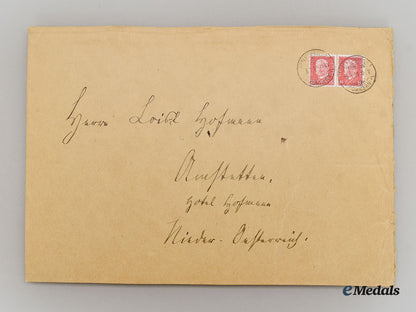 Herrn Loisl Hofmann
Amstetten.
Hotel Hofmann
Nieder-Oesterreich.
eMedals